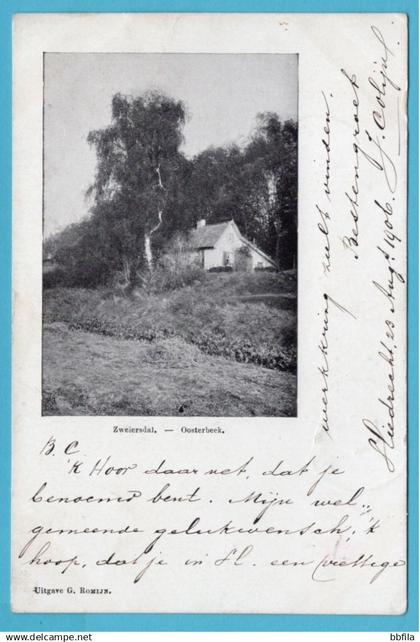 Zweiersdal. — Oosterbeek.
B. C.
'k Hoor daar net, dat je
benoemd bent. Mijn wel-
gemeende gelukwensch, 'k
hoop, dat je in Sl. een prettige
werkkring zult vinden.
Bestengroet
J. Colijn
Sliedrecht, 25 Aug. 1906.
Uitgave G. Romijn.
bbfila
www.delcampe.net